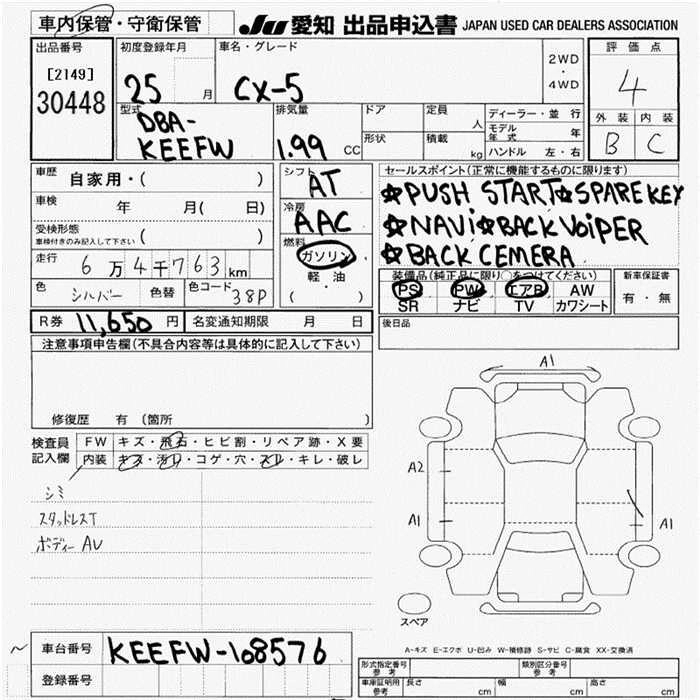 車内保管・守衛保管
JU 愛知 出品申込書 JAPAN USED CAR DEALERS ASSOCIATION
出品番号
[2149]
30448
初度登録年月
25 月
車名・グレード
CX-5
2WD
・
4WD
評価点
4
外装 内装
B C
型式
DBA-
KEEFW
排気量
1.99 CC
ドア
形状
定員
人
積載
kg
ディーラー・並行
モデル年式 年
ハンドル 左・右
車歴
自家用・( )
車検
年 月( 日)
受検形態
車検付きのみ記入して下さい ( )
走行
6万4千763km
色
シルバー
色替
色コード
38P
シフト
AT
冷房
AAC
燃料
ガソリン
軽・油
( )
セールスポイント(正常に機能するものに限ります)
☆PUSH START☆SPARE KEY
☆NAVi☆BACK VOiPER
☆BACK CEMERA
装備品(純正品に限り○をつけてください)
PS PW エアB AW
SR ナビ TV カワシート
新車保証書
有・無
R券 11,650 円
名変通知期限 月 日
後日品
注意事項申告欄(不具合内容等は具体的に記入して下さい)
修復歴 有 (箇所 )
検査員
記入欄
FW キズ・飛石・ヒビ割・リペア跡・X要
内装 キズ・汚れ・コゲ・穴・スレ・キレ・破レ
シミ
スタッドレスT
ボディー AU
A1
A2
A1
A1
スペア
A-キズ E-エクボ U-凹み W-補修跡 S-サビ C-腐食 XX-交換済
車台番号
KEEFW-108576
登録番号
形式指定番号
参考
類別区分番号
参考
車庫証明用
参考
長さ cm
幅 cm
高さ cm